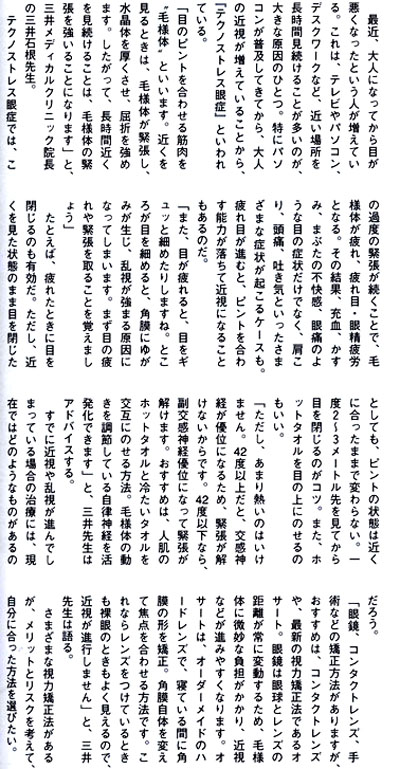 最近、大人になってから目が
悪くなったという人が増えてい
る。これは、テレビやパソコン、
デスクワークなど、近い場所を
長時間見続けることが多いのが、
大きな原因のひとつ。特にパソ
コンが普及してきてから、大人
の近視が増えていることから、
『テクノストレス眼症』といわれ
ている。
「目のピントを合わせる筋肉を
〝毛様体〟といいます。近くを
見るときは、毛様体が緊張し、
水晶体を厚くさせ、屈折を強め
ます。したがって、長時間近く
を見続けることは、毛様体の緊
張を強いることになります」と、
三井メディカルクリニック院長
の三井石根先生。
テクノストレス眼症では、こ
の過度の緊張が続くことで、毛
様体が疲れ、疲れ目・眼精疲労
となる。その結果、充血、かす
み、まぶたの不快感、眼痛のよ
うな目の症状だけでなく、肩こ
り、頭痛、吐き気といったさま
ざまな症状が起こるケースも。
疲れ目が進むと、ピントを合わ
す能力が落ちて近視になること
もあるのだ。
「また、目が疲れると、目をギ
ュッと細めたりしますね。とこ
ろが目を細めると、角膜にゆが
みが生じ、乱視が強まる原因に
なってしまいます。まず目の疲
れや緊張を取ることを覚えまし
ょう」
たとえば、疲れたときに目を
閉じるのも有効だ。ただし、近
くを見た状態のまま目を閉じた
としても、ピントの状態は近く
に合ったままで変わらない。一
度2〜3メートル先を見てから
目を閉じるのがコツ。また、ホ
ットタオルを目の上にのせるの
もいい。
「ただし、あまり熱いのはいけ
ません。42度以上だと、交感神
経が優位になるため、緊張が解
けないからです。42度以下なら、
副交感神経優位になって緊張が
解けます。おすすめは、人肌の
ホットタオルと冷たいタオルを
交互にのせる方法。毛様体の動
きを調節している自律神経を活
発化できます」と、三井先生は
アドバイスする。
すでに近視や乱視が進んでし
まっている場合の治療には、現
在ではどのようなものがあるの
だろう。
「眼鏡、コンタクトレンズ、手
術などの矯正方法がありますが、
おすすめは、コンタクトレンズ
や、最新の視力矯正法であるオ
サート。眼鏡は眼球とレンズの
距離が常に変動するため、毛様
体に微妙な負担がかかり、近視
などが進みやすくなります。オ
サートは、オーダーメイドのハ
ードレンズで、寝ている間に角
膜の形を矯正。角膜自体を変え
て焦点を合わせる方法です。こ
れならレンズをつけているとき
も裸眼のときもよく見えるので、
近視が進行しません」と、三井
先生は語る。
さまざまな視力矯正法がある
が、メリットとリスクを考えて、
自分に合った方法を選びたい。